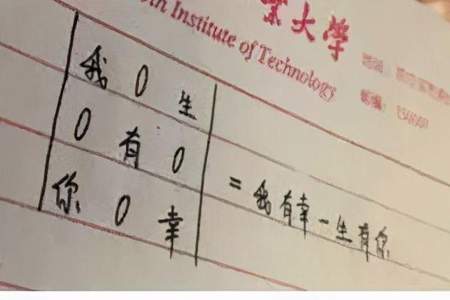 大學
Institute of Technology
邮编:
我 0 生
0 有 0
你 0 幸
= 我有幸一生有你